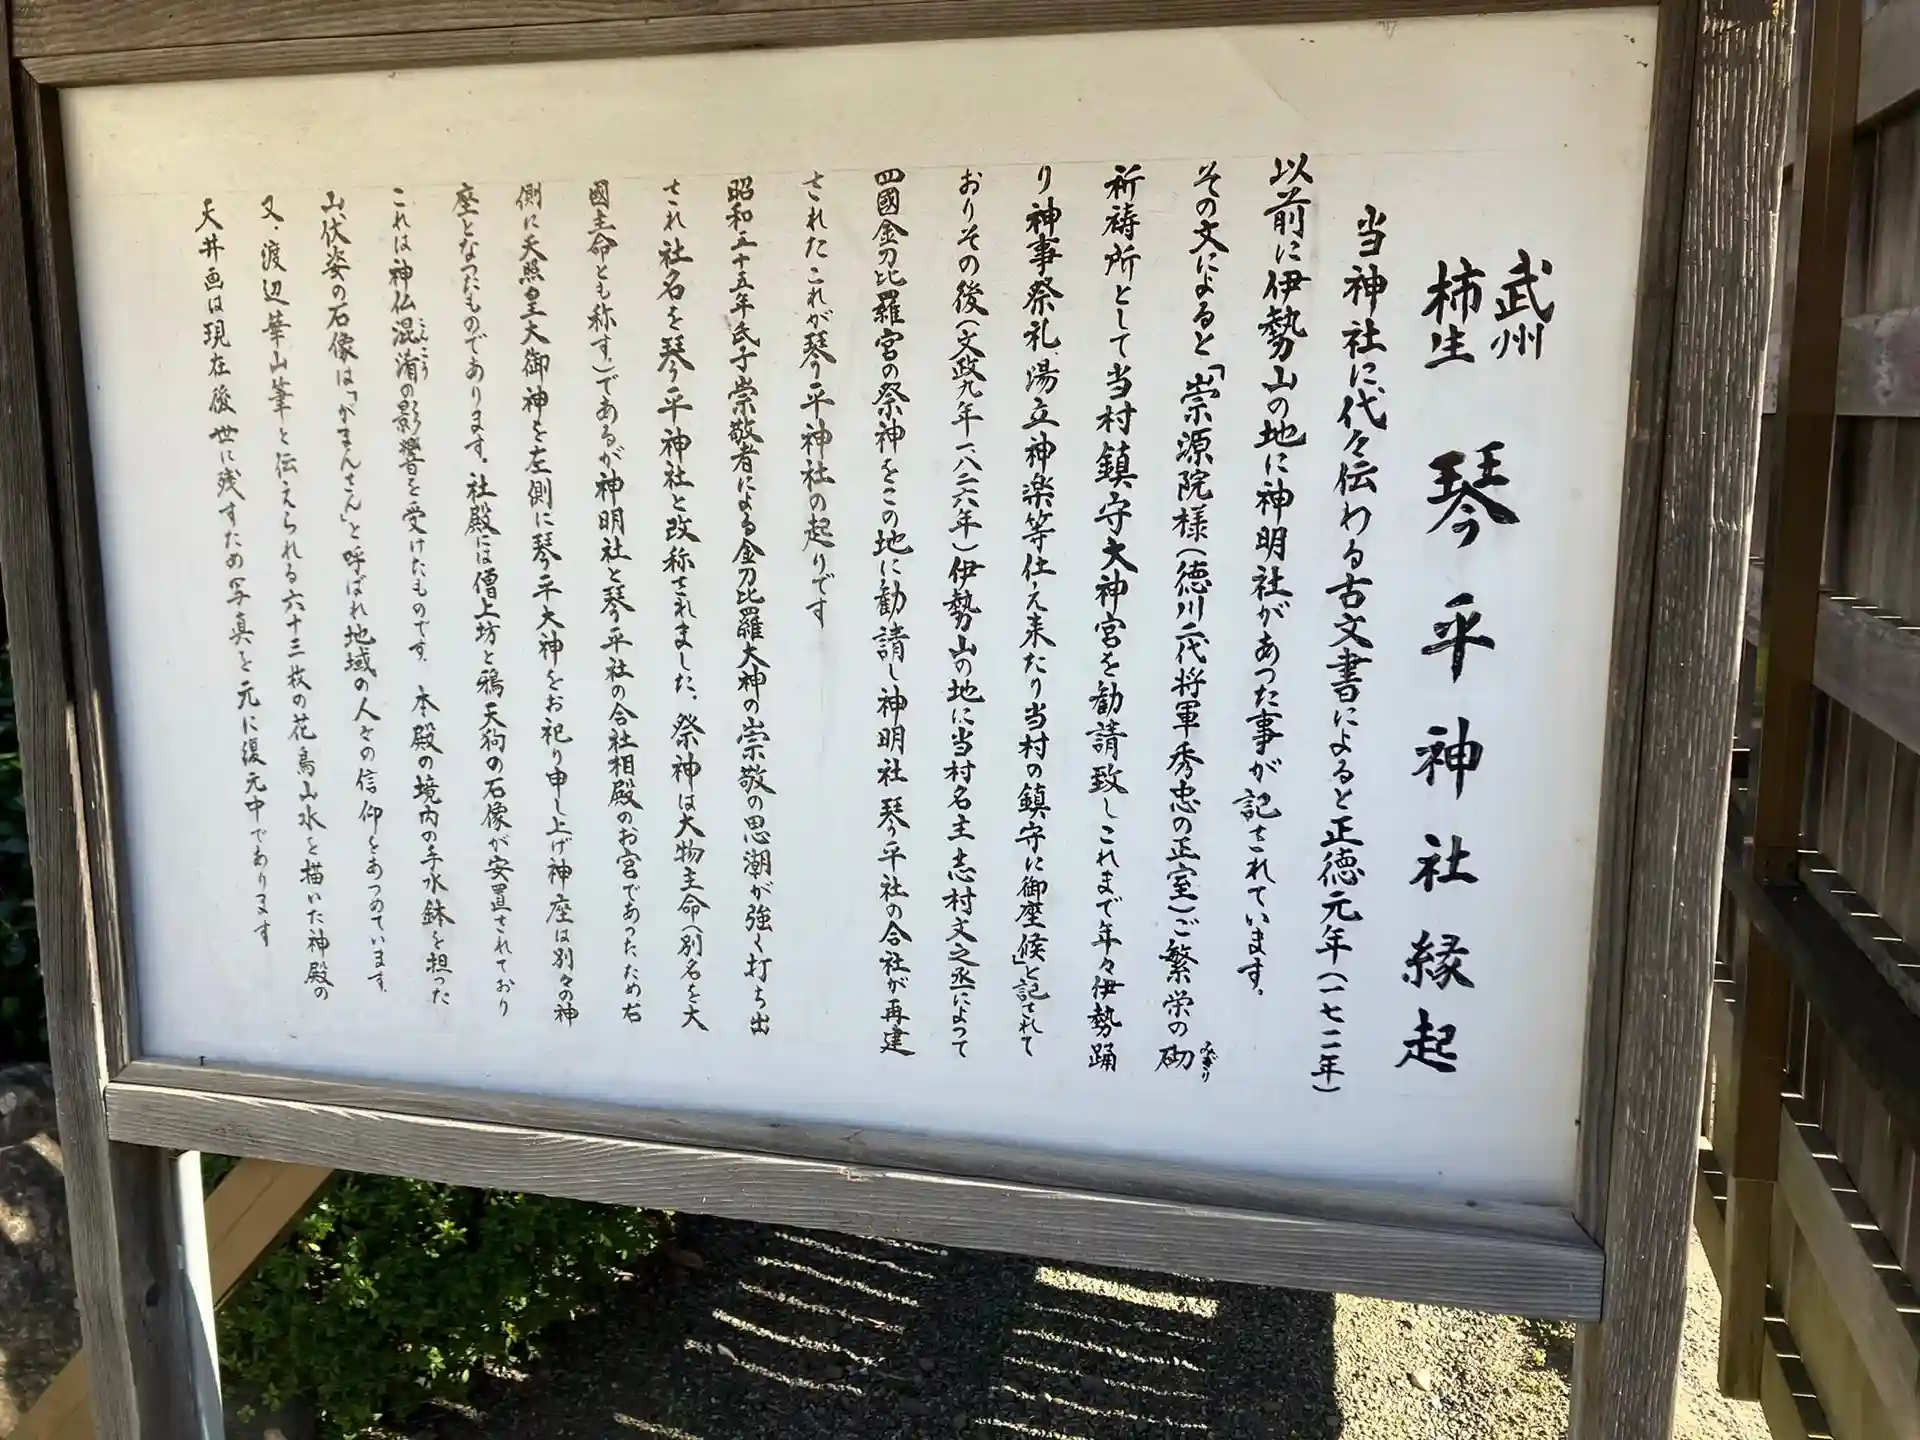 武州
柿生
琴平神社縁起
当神社に、代々伝わる古文書によると正徳元年(一七一一年)
以前に伊勢山の地に神明社があった事が記されています。
その文によると「崇源院様(徳川二代将軍秀忠の正室)ご繁栄の砌
みぎり
祈祷所として当村鎮守大神宮を勧請致しこれまで年々伊勢踊
り神事祭礼、湯立神楽等仕え来たり当村の鎮守に御座候」と記されて
おりその後(文政九年一八二六年)伊勢山の地に当村名主志村文之丞によって
四國金刀比羅宮の祭神をこの地に勧請し神明社琴平社の合社が再建
されたこれが琴平神社の起りです
昭和五十五年氏子崇敬者による金刀比羅大神の崇敬の思潮が強く打ち出
され社名を琴平神社と改称されました。祭神は大物主命(別名を大
國主命とも称す)であるが神明社と琴平社の合社相殿のお宮であったため右
側に天照皇大御神を左側に琴平大神をお祀り申し上げ神座は別々の神
座となったものであります。社殿には僧上坊と鴉天狗の石像が安置されており
これは神仏混淆の影響を受けたものです。本殿の境内の手水鉢を担った
こんこう
山伏姿の石像は「がまんさん」と呼ばれ地域の人々の信仰をあつめています。
又、渡辺華山筆と伝えられる六十三枚の花鳥山水を描いた神殿の
天井画は現在後世に残すため写真を元に復元中であります